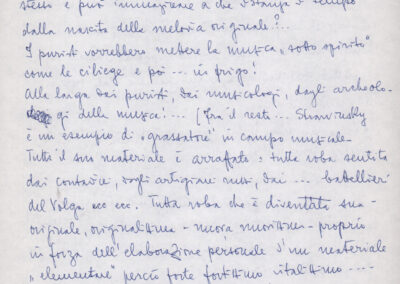 stesso e può immaginare a che distanza di tempo
dalla nascita della melodia originale?..
I puristi vorrebbero mettere la musica "sotto spirito"
come le ciliege e poi ... in frigo!
Alla larga dai puristi, dai musicologi, dagli archeolo-
gi della musica!... (Fra l'resto... Strawinsky
è un esempio di "grassatore" in campo musicale-
Tutto il suo materiale è arraffato: tutta roba sentita
dai contadini, dagli artigiani russi, dai ... battellieri
del Volga ecc ecc. Tutta roba che è diventata sua-
originale, originalissima - nuova nuovissima - proprio
in forza dell'elaborazione personale d'un materiale
"elementare" perciò forte fortissimo vitalissimo ....